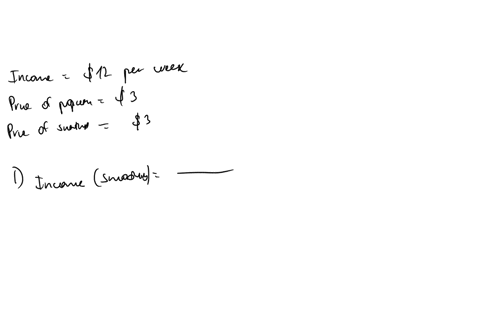 Income = $12 per week
Price of popcorn = $3
Price of = $3
1) Income (smoothies) = ____